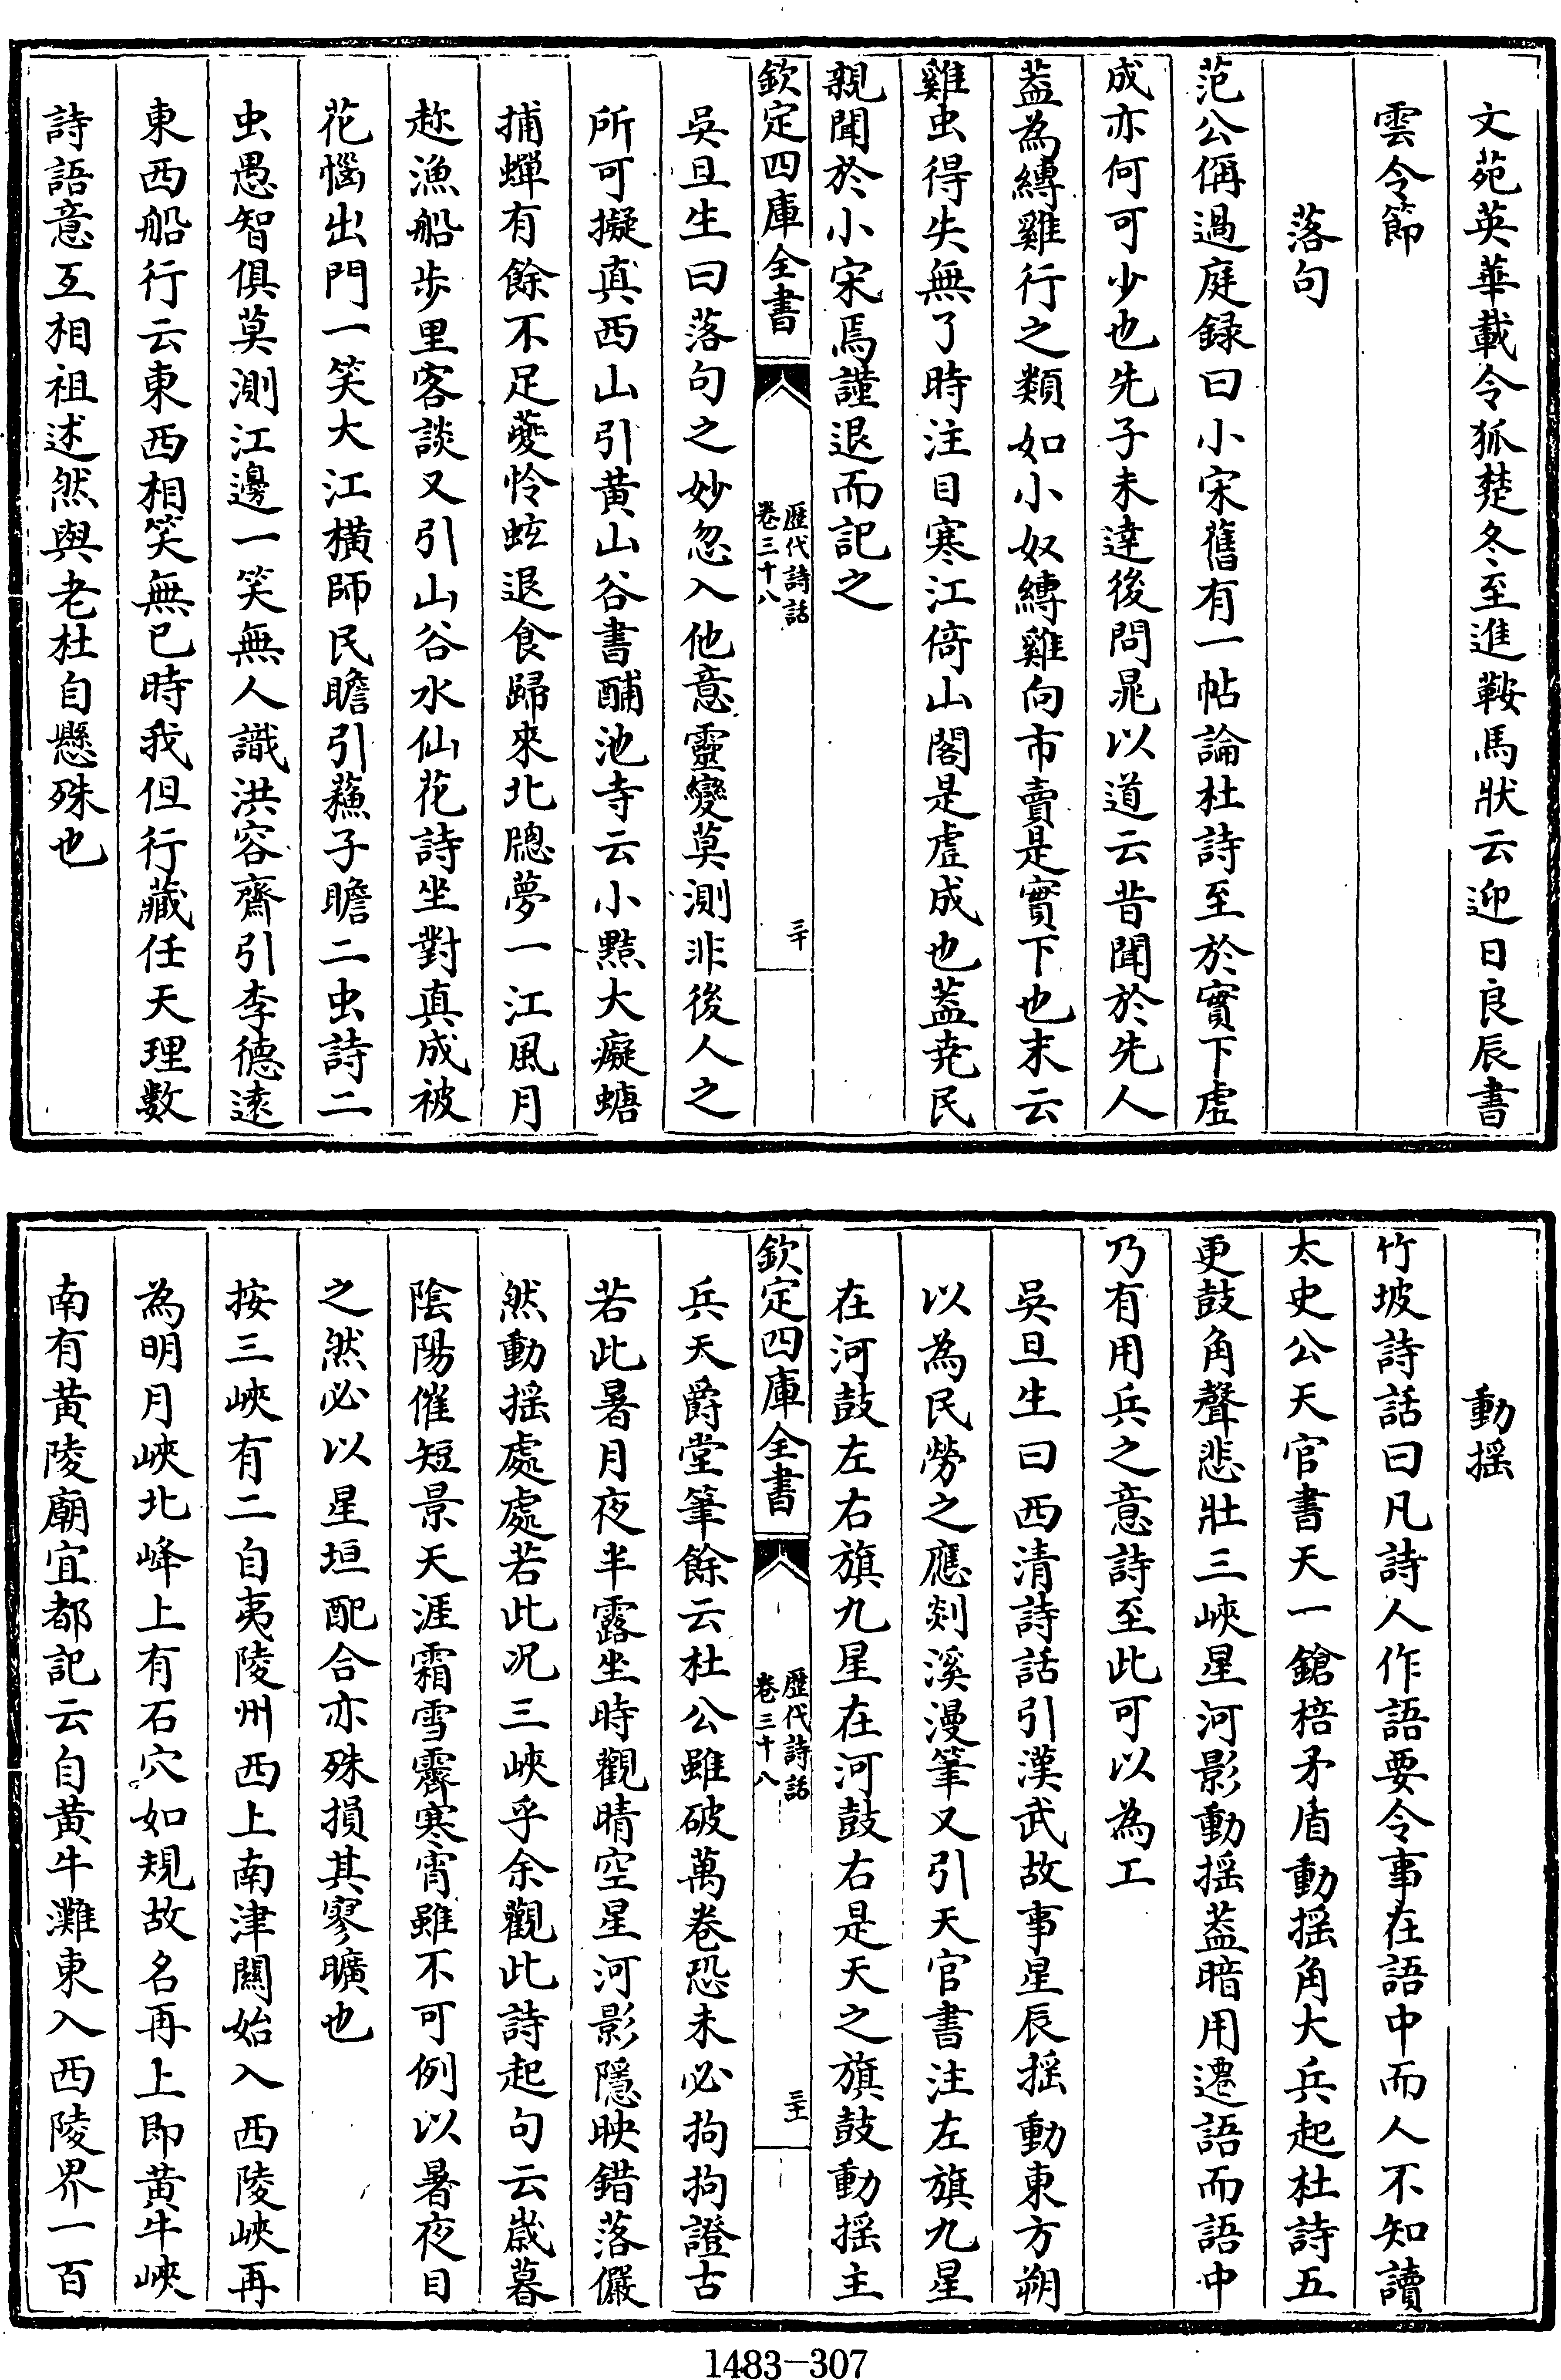 文苑英華載令狐楚冬至進鞍馬狀云迎日良辰書
雲令節
落句
范公偁過庭録曰小宋舊有一帖論杜詩至於實下虛
成亦何可少也先子未達後問晁以道云昔聞於先人
葢為縛雞行之類如小奴縛雞向市賣是實下也末云
雞虫得失無了時注目寒江倚山閣是虛成也葢堯民
親聞於小宋焉謹退而記之
欽定四庫全書
歴代詩話
卷三十八
三十
吳旦生曰落句之妙忽入他意靈變莫測非後人之
所可擬真西山引黄山谷書酺池寺云小黠大癡螗
捕蟬有餘不足夔怜蚿退食歸來北牕夢一江風月
趂漁船歩里客談又引山谷水仙花詩坐對真成被
花惱出門一笑大江橫師民瞻引蘓子瞻二虫詩二
虫愚智俱莫測江邊一笑無人識洪容齋引李德逺
東西船行云東西相笑無已時我但行藏任天理數
詩語意互相祖述然與老杜自懸殊也
動揺
竹坡詩話曰凡詩人作語要令事在語中而人不知讀
太史公天官書天一鎗棓矛盾動揺角大兵起杜詩五
更鼓角聲悲壯三峽星河影動揺葢暗用遷語而語中
乃有用兵之意詩至此可以為工
吳旦生曰西清詩話引漢武故事星辰揺動東方朔
以為民勞之應剡溪漫筆又引天官書注左旗九星
在河鼓左右旗九星在河鼓右是天之旗鼓動揺主
欽定四庫全書
歴代詩話
卷三十八
三十一
兵天爵堂筆餘云杜公雖破萬卷恐未必拘拘證古
若此暑月夜半露坐時觀晴空星河影隱映錯落儼
然動揺處處若此况三峽乎余觀此詩起句云歲暮
陰陽催短景天涯霜雪霽寒宵雖不可例以暑夜目
之然必以星垣配合亦殊損其寥曠也
按三峽有二自夷陵州西上南津闗始入西陵峽再
為明月峽北峰上有石穴如規故名再上即黄牛峽
南有黄陵廟宜都記云自黄牛灘東入西陵界一百
1483-307